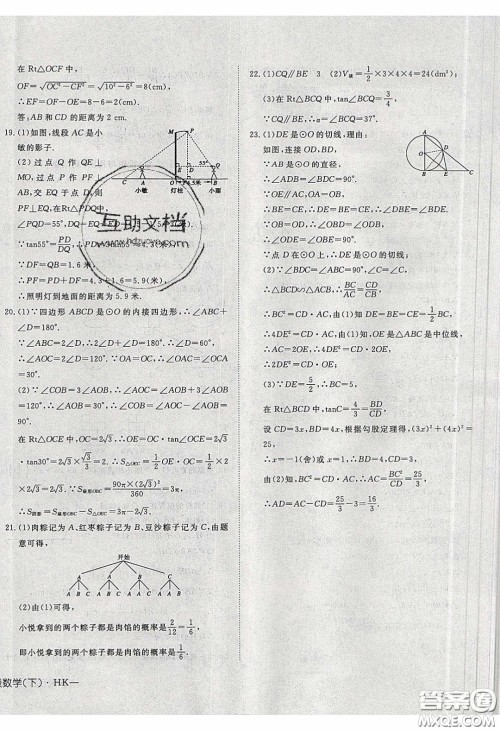 在 Rt△OCF 中,
OF=√(OC²−CF²)=√(10²−6²)=8(cm)
∴EF=OF−OE=8−6=2(cm).
答:AB 和 CD 的距离为 2 cm.
19.(1)如图,线段 AC 是小
敏的影子.
(2)过点 Q 作 QE⊥
MO,过点 P 作
PF⊥EQ
∠PQD=55°
∵tan55°=PD/DQ
∵DF=QB=1.6 米,
=4.3+1.6=5.9(米)
∴照明灯到地面的距离为 5.9 米.
M P
E F D 55° Q
C A O B
小敏 灯柱 4.5米 小丽
20.(1)∵四边形 ABCD 是⊙O 的内接四边形,∴∠ABC+
∠D=180°.
∵∠ABC=2∠D,∴∠D+2∠D=180°,∴∠D=60°,
∴∠AOC=2∠D=120°.∵OA=OC,∴∠OAC=∠OCA=
30°.
(2)∵∠COB=3∠AOB,∴∠AOC=∠AOB+3∠AOB=
120°,∴∠AOB=30°,∴∠COB=∠AOC−∠AOB=
90°.
在 Rt△OCE 中,OC=2√3,∴OE=OC·tan∠OCE=2√3
·tan30°=2√3×√3/3=2.∴S△OEC=1/2 OE·OC=1/2×2×
2√3=2√3,∴S扇形OBC=90π×(2√3)²/360=3π.
∴S阴影=S扇形OBC−S△OEC=3π−2√3.
21.(1)肉粽记为 A,红枣粽子记为 B,豆沙粽子记为 C,由题
意可得,
开始
A A B C
A B C A B C A A C A A B
(2)由(1)可得,
小悦拿到的两个粽子都是肉馅的概率是2/12=1/6,
即小悦拿到的两个粽子都是肉馅的概率是1/6.
数学(下)·HK—
22.(1)CQ∥BE 3 (2)V液=1/2×3×4×4=24(dm³);
(3)在 Rt△BCQ 中,tan∠BCQ=3/4,
∵CQ∥BE,∴α=∠BCQ=37°.
23.(1)DE 是⊙O 的切线,理由:
如图,连接 OD,BD.
∵AB 是⊙O 的直径,
∴∠ADB=∠BDC=90°.
∴∠ODE=∠OBE=90°.
∵点 D 在⊙O 上,∴DE 是⊙O 的切线.
(2)∵∠BCD=∠ACB,∠BDC=∠ABC=90°,
∴△BCD∽△ACB,∴BC/AC=CD/CB,
∴BC²=CD·AC,由(1)知 DE=BE=CE=1/2BC,
∴4DE²=CD·AC,由(1)知 OE 是△ABC 是中位线,
∴AC=2OE,∴4DE²=CD·2OE,
∴2DE²=CD·OE.
(3)∵DE=5/2,∴BC=5,
在 Rt△BCD 中,tanC=4/3=BD/CD,
设 CD=3x,BD=4x,根据勾股定理得,(3x)²+(4x)²=
25,
∴x=−1(舍)或 x=1,
∴CD=3,由(2)知,BC²=CD·AC,∴AC=BC²/CD=25/3,
∴AD=AC−CD=25/3−3=16/3.
互助文档
答案圈
MXQE.COM